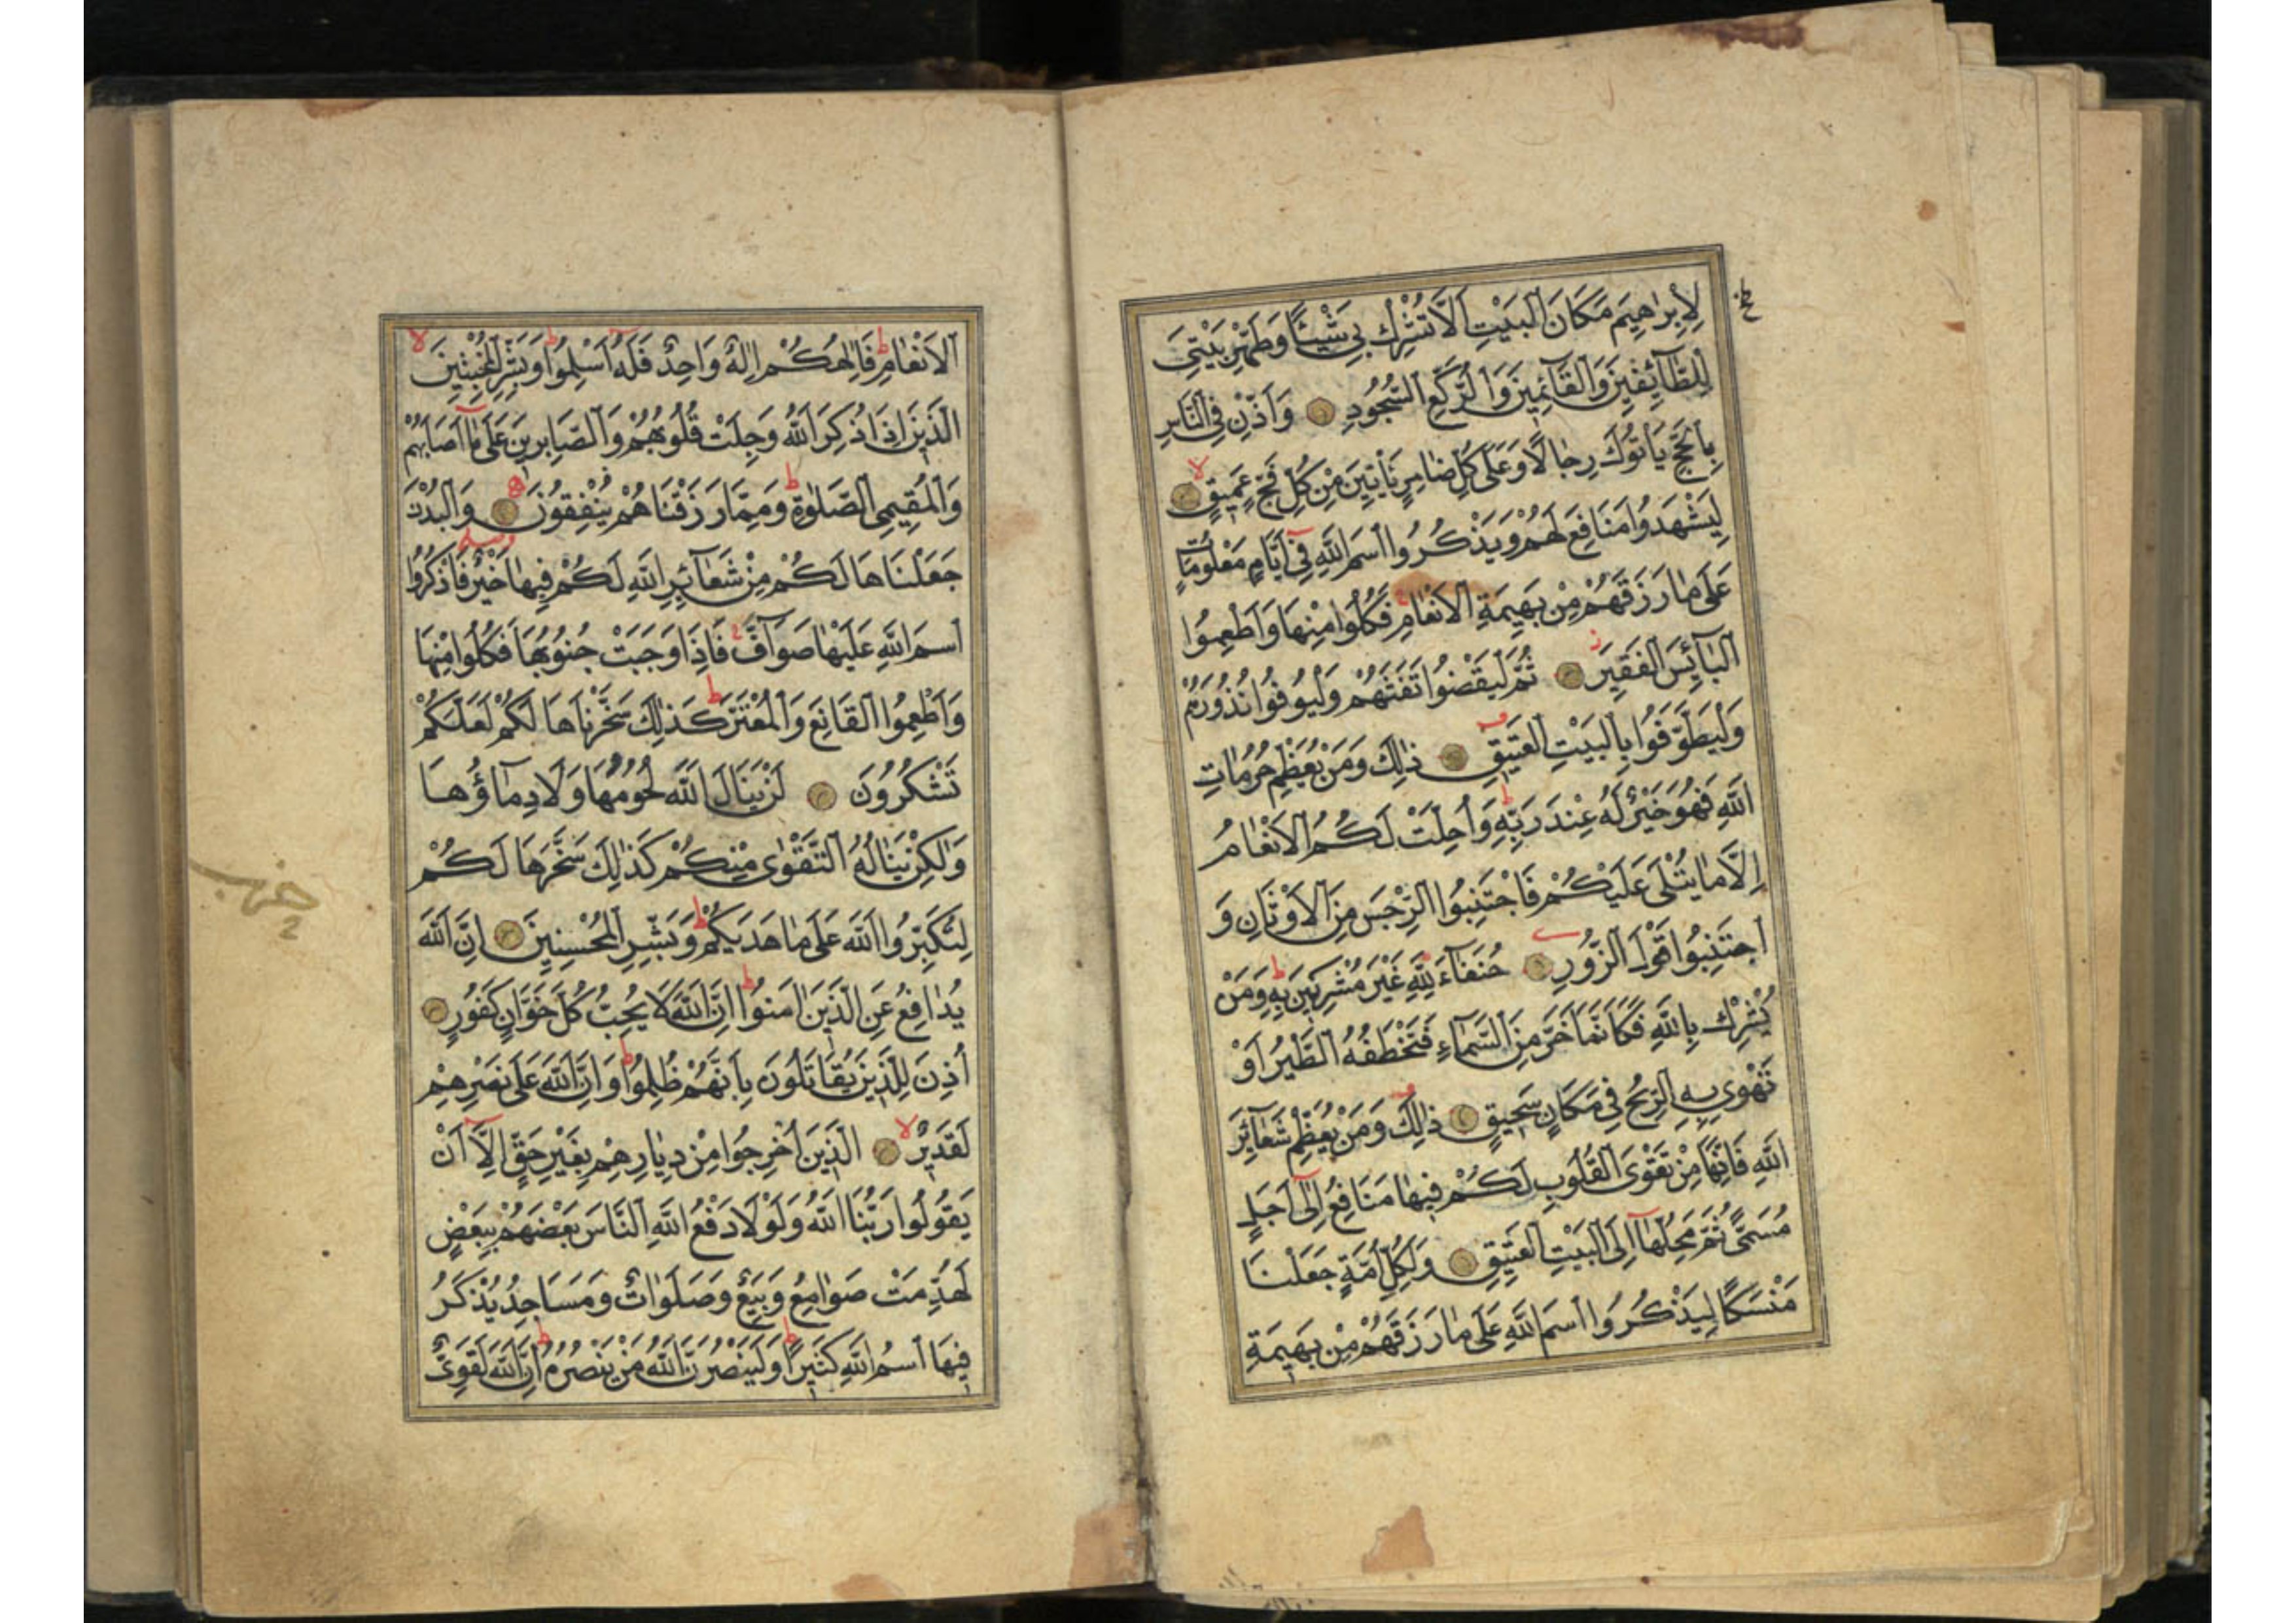 لِإِبْرٰهِيمَ مَكَانَ الْبَيْتِ اَلَّا تُشْرِكْ بِي شَيْئًا وَطَهِّرْ بَيْتِيَ
لِلطَّآئِفِينَ وَالْقَآئِمِينَ وَالرُّكَّعِ السُّجُودِ وَاَذِّنْ فِي النَّاسِ
بِالْحَجِّ يَاْتُوكَ رِجَالًا وَعَلٰى كُلِّ ضَامِرٍ يَاْتِينَ مِنْ كُلِّ فَجٍّ عَمِيقٍ
لِيَشْهَدُوا مَنَافِعَ لَهُمْ وَيَذْكُرُوا اسْمَ اللّٰهِ فِي اَيَّامٍ مَعْلُومَاتٍ
عَلٰى مَا رَزَقَهُمْ مِنْ بَهِيمَةِ الْاَنْعَامِ فَكُلُوا مِنْهَا وَاَطْعِمُوا
الْبَآئِسَ الْفَقِيرَ ثُمَّ لْيَقْضُوا تَفَثَهُمْ وَلْيُوفُوا نُذُورَهُمْ
وَلْيَطَّوَّفُوا بِالْبَيْتِ الْعَتِيقِ ذٰلِكَ وَمَنْ يُعَظِّمْ حُرُمَاتِ
اللّٰهِ فَهُوَ خَيْرٌ لَهُ عِنْدَ رَبِّهِ وَاُحِلَّتْ لَكُمُ الْاَنْعَامُ
اِلَّا مَا يُتْلٰى عَلَيْكُمْ فَاجْتَنِبُوا الرِّجْسَ مِنَ الْاَوْثَانِ وَ
اجْتَنِبُوا قَوْلَ الزُّورِ حُنَفَآءَ لِلّٰهِ غَيْرَ مُشْرِكِينَ بِهِ وَمَنْ
يُشْرِكْ بِاللّٰهِ فَكَاَنَّمَا خَرَّ مِنَ السَّمَآءِ فَتَخْطَفُهُ الطَّيْرُ اَوْ
تَهْوِي بِهِ الرِّيحُ فِي مَكَانٍ سَحِيقٍ ذٰلِكَ وَمَنْ يُعَظِّمْ شَعَآئِرَ
اللّٰهِ فَاِنَّهَا مِنْ تَقْوَى الْقُلُوبِ لَكُمْ فِيهَا مَنَافِعُ اِلٰى اَجَلٍ
مُسَمًّى ثُمَّ مَحِلُّهَا اِلَى الْبَيْتِ الْعَتِيقِ وَلِكُلِّ اُمَّةٍ جَعَلْنَا
مَنْسَكًا لِيَذْكُرُوا اسْمَ اللّٰهِ عَلٰى مَا رَزَقَهُمْ مِنْ بَهِيمَةِ
الْاَنْعَامِ فَاِلٰهُكُمْ اِلٰهٌ وَاحِدٌ فَلَهُ اَسْلِمُوا وَبَشِّرِ الْمُخْبِتِينَ
الَّذِينَ اِذَا ذُكِرَ اللّٰهُ وَجِلَتْ قُلُوبُهُمْ وَالصَّابِرِينَ عَلٰى مَا اَصَابَهُمْ
وَالْمُقِيمِي الصَّلٰوةِ وَمِمَّا رَزَقْنَاهُمْ يُنْفِقُونَ وَالْبُدْنَ
جَعَلْنَاهَا لَكُمْ مِنْ شَعَآئِرِ اللّٰهِ لَكُمْ فِيهَا خَيْرٌ فَاذْكُرُوا
اسْمَ اللّٰهِ عَلَيْهَا صَوَآفَّ فَاِذَا وَجَبَتْ جُنُوبُهَا فَكُلُوا مِنْهَا
وَاَطْعِمُوا الْقَانِعَ وَالْمُعْتَرَّ كَذٰلِكَ سَخَّرْنَاهَا لَكُمْ لَعَلَّكُمْ
تَشْكُرُونَ لَنْ يَنَالَ اللّٰهَ لُحُومُهَا وَلَا دِمَآؤُهَا
وَلٰكِنْ يَنَالُهُ التَّقْوٰى مِنْكُمْ كَذٰلِكَ سَخَّرَهَا لَكُمْ
لِتُكَبِّرُوا اللّٰهَ عَلٰى مَا هَدٰيكُمْ وَبَشِّرِ الْمُحْسِنِينَ اِنَّ اللّٰهَ
يُدَافِعُ عَنِ الَّذِينَ اٰمَنُوا اِنَّ اللّٰهَ لَا يُحِبُّ كُلَّ خَوَّانٍ كَفُورٍ
اُذِنَ لِلَّذِينَ يُقَاتَلُونَ بِاَنَّهُمْ ظُلِمُوا وَاِنَّ اللّٰهَ عَلٰى نَصْرِهِمْ
لَقَدِيرٌ الَّذِينَ اُخْرِجُوا مِنْ دِيَارِهِمْ بِغَيْرِ حَقٍّ اِلَّا اَنْ
يَقُولُوا رَبُّنَا اللّٰهُ وَلَوْلَا دَفْعُ اللّٰهِ النَّاسَ بَعْضَهُمْ بِبَعْضٍ
لَهُدِّمَتْ صَوَامِعُ وَبِيَعٌ وَصَلَوَاتٌ وَمَسَاجِدُ يُذْكَرُ
فِيهَا اسْمُ اللّٰهِ كَثِيرًا وَلَيَنْصُرَنَّ اللّٰهُ مَنْ يَنْصُرُهُ اِنَّ اللّٰهَ لَقَوِيٌّ
حزب